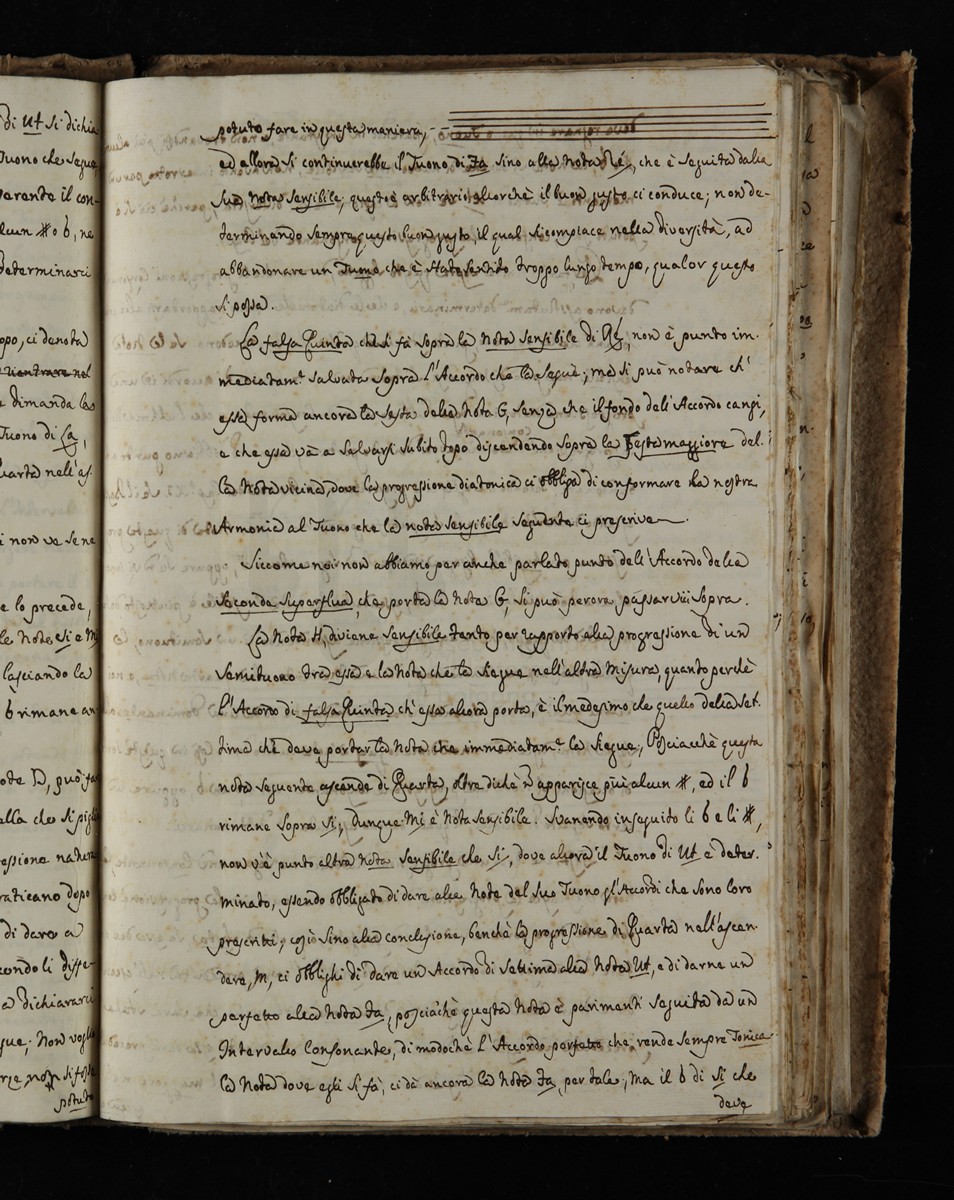 potuto fare in questa maniera, -
ed allora si continuerebbe il Tuono di Fa sino alla Nota Ré, che è seguita dalla
sua Nota Sensibile; questo è arbitrario allorchè il buon gusto ci conduce; non de-
terminando sempre questo buon gusto, il qual si compiace nella diversità, ad
abbandonare un Tuono che è stato sentito troppo lungo tempo, qualor questo
si possa.
La falsa Quinta che si fà sopra la Nota Sensibile di Ré, non è punto im-
mediatam.e salvata sopra l'Accordo che la segue; ma si può notare ch'
essa forma ancora la sesta della Nota G, senza che il fondo dell'Accordo cangi,
e che essa và a salvarsi subito dopo discendendo sopra la Testa maggiore del-
la Nota vicina, dove la progressione diatonica ci obbliga di conformare la nostra
Armonia al Tuono che la nota Sensibile seguente ci prescrive.
Siccome noi non abbiamo per anche parlato punto dell'Accordo della
Seconda Superflua, che porta la Nota G, si può per ora passarvici sopra.
La Nota H, diviene Sensibile tanto per rapporto alla progressione di un
Semituono trà essa e la Nota che la siegue nell'altra Misura, quanto perchè
l'Accordo di falsa Quinta ch'essa allora porta, è il medesimo che quello della Set-
tima che deve portar la Nota che immediatam.e la siegue; Posciacchè questa
nota seguente ascende di Quarta, oltre di chè ñ apparisce più alcun #, ed il b
rimane sopra Si, dunque Mi è Nota Sensibile. Svanendo in seguito li b e li #,
non v'è punto altra nota Sensibile che Si, dove allora il Tuono di Ut è deter-
minato, essendo obbligato di dare alle Note del suo Tuono gl'Accordi che sono loro
prescritti, e così sino alla conclusione, benchè la progressione di Quarta nell'ascen-
dere, M, ci obblighi di dare un Accordo di Settima alla Nota Ut, e di darne un
perfetto alla Nota Fa, posciachè questa Nota è parimenti seguita da un
Intervallo Consonante, di modochè l'Accordo perfetto che rende sempre Tonica
la Nota dove egli si fà, ci dà ancora la Nota Fa per tale; ma il b di Si che
deve